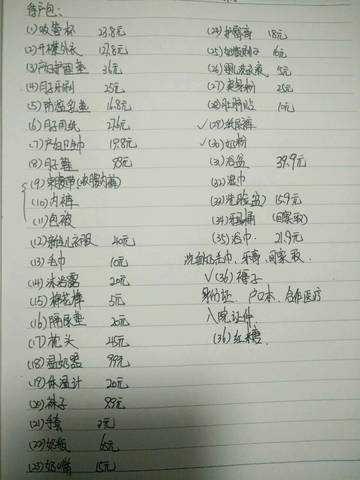 待产包:
(1) 吸管杯 23.8元
(2) 开襟外衣 127.8元
(3) 产后护理垫 36元
(4) 月子牙刷 25元
(5) 防溢乳垫 16.8元
(6) 月子用纸 27.6元
(7) 产后卫生巾 19.8元
(8) 月子鞋
(9) 束腹带(收腹内裤)
(10) 内裤
(11) 包被
(12) 新生儿衣服 40元
(13) 毛巾 10元
(14) 沐浴露 20元
(15) 棉花棒 5元
(16) 隔尿垫 20元
(17) 枕头 45元
(18) 温奶器 99元
(19) 体温计 20元
(20) 袜子 9.9元
(21) 手套 2元
(22) 奶瓶 65元
(23) 奶嘴 15元
(24) 护臀膏 18元
(25) 奶瓶刷子
(26) 洗衣液
(27) 爽身粉 25元
(28) 肚脐贴
✓(29) 纸尿裤
✓(30) 奶粉
(31) 浴盆 39.9元
(32) 湿巾
(33) 洗脸盆 15.9元
(34) (回家取)
(35) 浴巾 21.9元
毛巾,牙膏,回家取.
✓(36) 褥子
身份证、户口本、合作医疗
入院证件.
(36) 红糖.